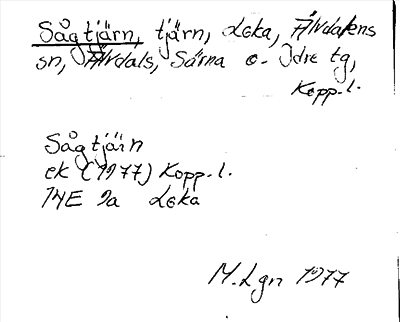 Sågtjärn, tjärn, Loka, Älvdalens
sn, Älvdals, Särna o. Idre tg,
Kopp. l.
Sågtjärn
ek (1977) Kopp. l.
14E 9a Loka
M. Lgn 1977